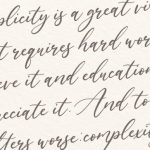 plicity is a great vi
t requires hard wor
eve it and education
reciate it. And to
tters worse: complexit